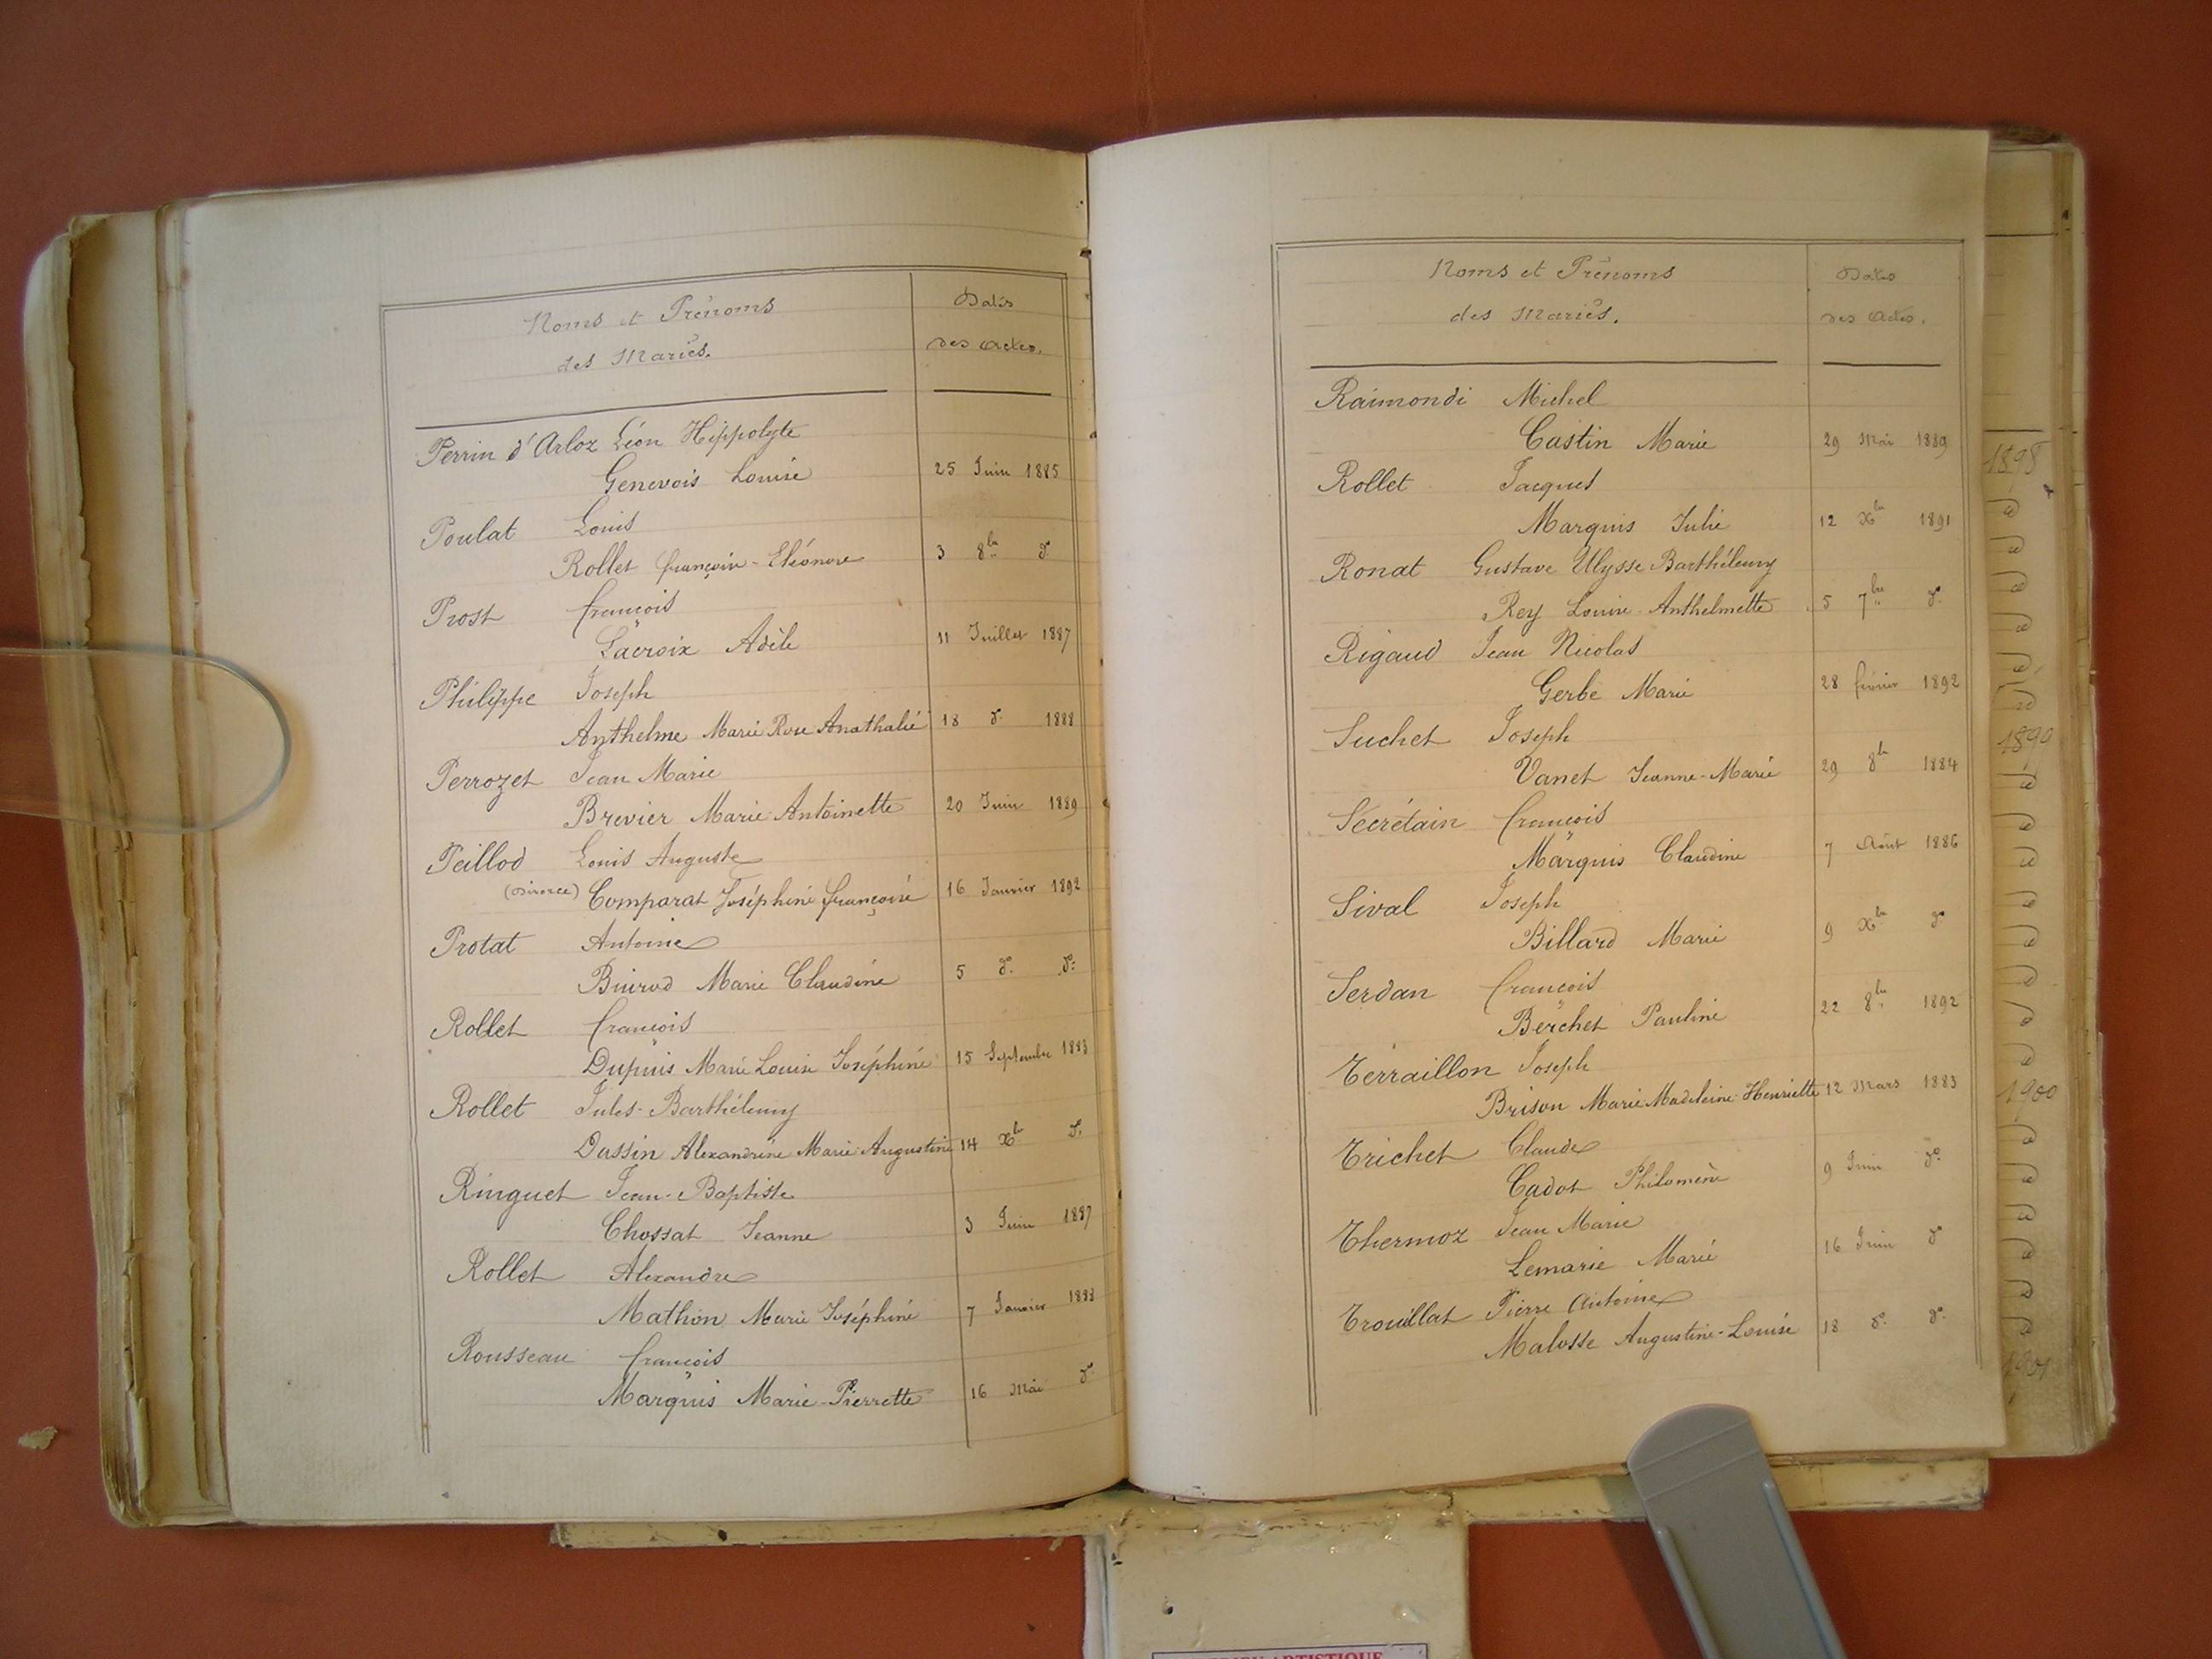 Noms et Prénoms
des Mariés.
Dates
des actes.
Perrin d'Arloz Léon Hippolyte
Genevois Louise 25 Juin 1885
Poulat Louis
Rollet françoise-Eléonore 3 8bre do
Prost françois
Lacroix Adèle 11 Juillet 1887
Philippe Joseph
Anthelme Marie Rose Anathalie 18 do 1888
Perrozet Jean Marie
Brevier Marie Antoinette 20 Juin 1889
Peillod Louis Auguste
(Divorce) Comparat Joséphine françoise 16 Janvier 1892
Protat Antoine
Buirod Marie Claudine 5 do do
Rollet françois
Dupuis Marie Louise Joséphine 15 Septembre 1883
Rollet Jules-Barthélemy
Dassin Alexandrine Marie Augustine 14 Xbre do
Ringuet Jean-Baptiste
Chossat Jeanne 3 Juin 1887
Rollet Alexandre
Mathon Marie Joséphine 7 Janvier 1888
Rousseau françois
Marquis Marie-Pierrette 16 Mai do
Noms et Prénoms
des Mariés.
Dates
des actes.
Raimondi Michel
Castin Marie 29 Mai 1889
Rollet Jacques
Marquis Julie 12 Xbre 1891
Ronat Gustave Ulysse Barthélemy
Rey Louise-Anthelmette 5 7bre do
Rigaud Jean Nicolas
Gerbe Marie 28 février 1892
Suchet Joseph
Vanet Jeanne-Marie 29 8bre 1884
Secrétain françois
Marquis Claudine 7 Août 1886
Sival Joseph
Billard Marie 9 Xbre do
Serdan françois
Berchet Pauline 22 8bre 1892
Terraillon Joseph
Brison Marie Madeleine-Henriette 12 Mars 1883
Trichet Claude
Cadot Philomène 9 Juin do
Thermoz Jean Marie
Lemarie Marie 16 Juin do
Trouillat Pierre Antoine
Malosse Augustine-Louise 18 do do
1898
1890
1900
1901
ARTISTIQUE